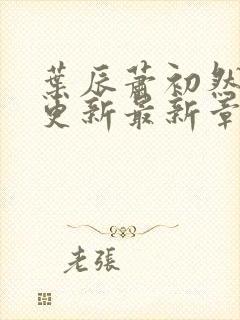 葉辰蕭初然
更新最新章
老張